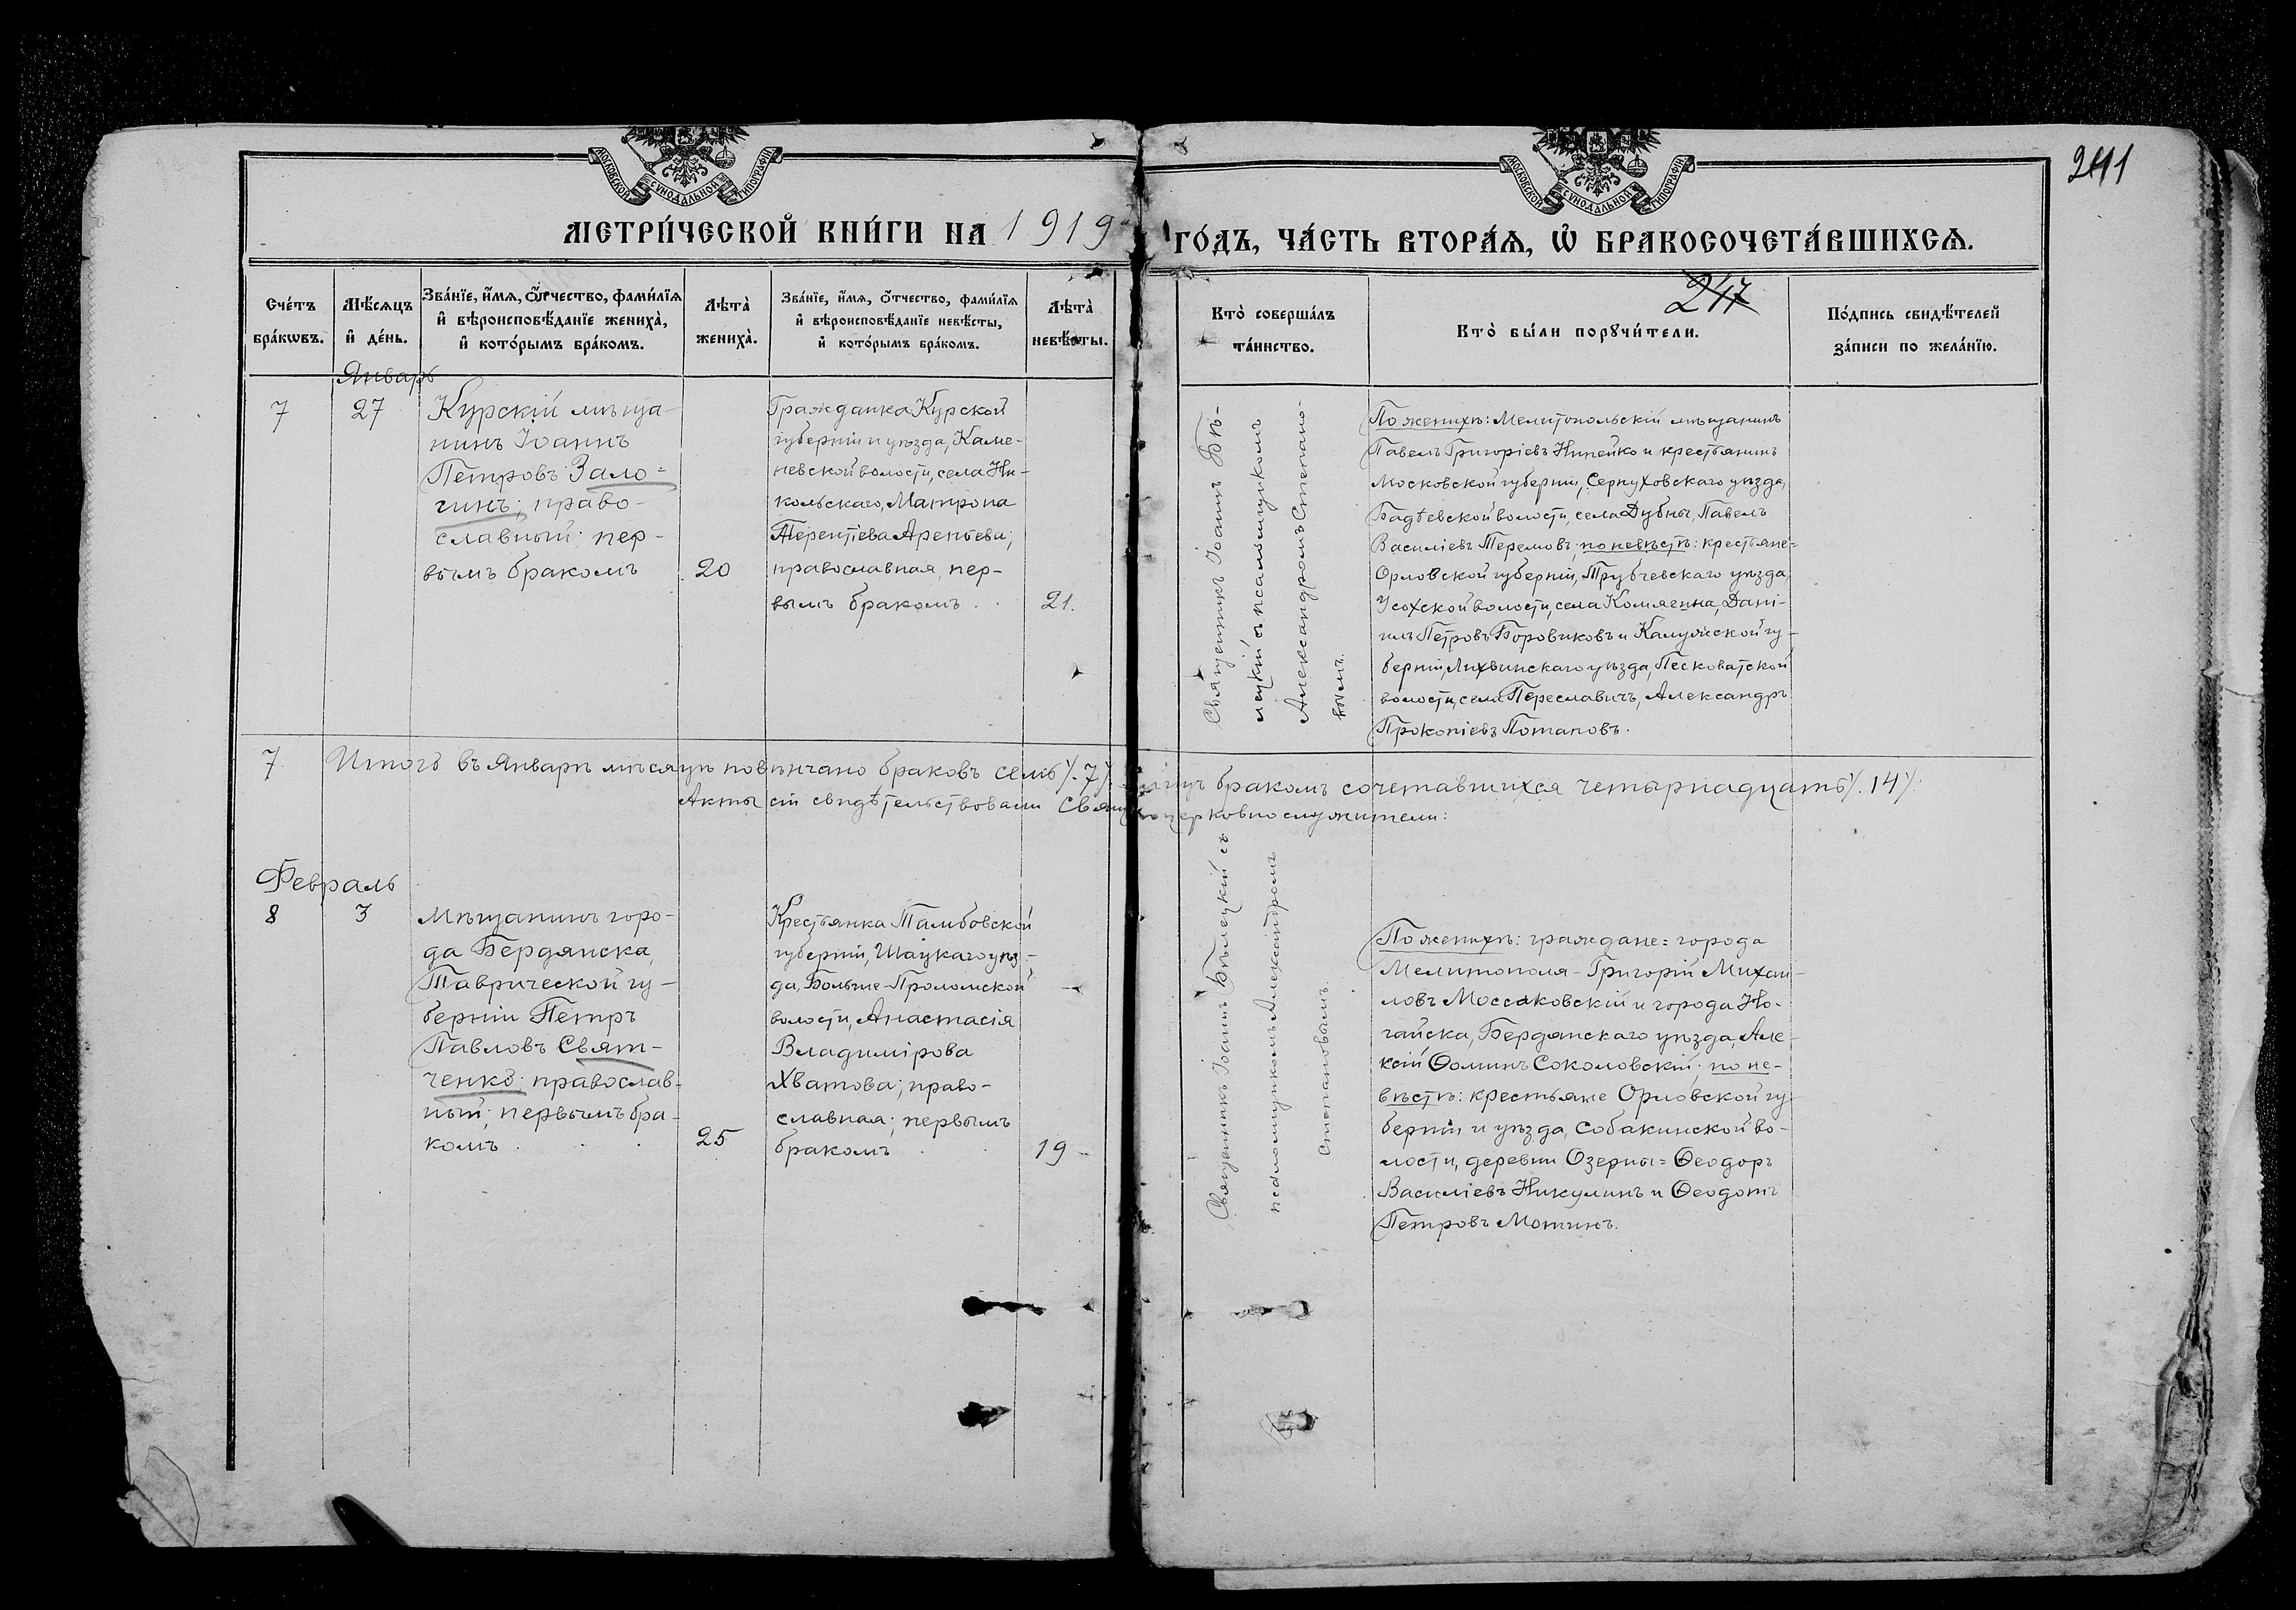 МОСКОВСКОЙ СѴНОДАЛЬНОЙ ТИПОГРАФІИ
МОСКОВСКОЙ СѴНОДАЛЬНОЙ ТИПОГРАФІИ
241
МЕТРИ́ЧЕСКОЙ КНИ́ГИ НА 1919 ГО́ДЪ, ЧА́СТЬ ВТОРА́Я, Ѡ҆ БРАКОСОЧЕТА́ВШИХСѦ.
247
Сче́тъ бра́кѡвъ.
Мѣ́сѧцъ и҆ де́нь.
Зва́нїе, и҆́мѧ, ѻ҆́тчество, фами́лїѧ
и҆ вѣроисповѣ́данїе жениха̀,
и҆ кото́рымъ бра́комъ.
Лѣта̀ жениха̀.
Зва́нїе, и҆́мѧ, ѻ҆́тчество, фами́лїѧ
и҆ вѣроисповѣ́данїе невѣ́сты,
и҆ кото́рымъ бра́комъ.
Лѣта̀ невѣ́сты.
Кто̀ соверша́лъ та́инство.
Кто̀ бы́ли порꙋчи́тели.
По́дпись свидѣ́телей за́писи по жела́нїю.
Январь
7
27
Курскій мѣща-
нинъ Іоаннъ
Петровъ Зало=
гинъ; право-
славный; пер-
вымъ бракомъ
20
Гражданка Курской
губерніи и уѣзда, Каме-
невской волости, села Ни-
кольскаго, Матрона
Терентіева Арепьева;
православная, пер-
вымъ бракомъ . .
21.
Священникъ Іоаннъ Бѣ-
лецкій съ псаломщикомъ
Александромъ Степано-
вымъ.
По женихѣ: Мелитопольскій мѣщанинъ
Павелъ Григоріевъ Нипейко и крестьянинъ
Московской губерніи, Серпуховскаго уѣзда,
Бадѣевской волости, села Дубны, Павелъ
Василіевъ Теремовъ; по невѣстѣ: крестьяне=
Орловской губерніи, Трубчевскаго уѣзда,
Усохской волости, села Комягина, Дані-
илъ Петровъ Боровиковъ и Калужской гу-
берніи, Лихвинскаго уѣзда, Песковатской
волости, села Переславичъ, Александръ
Прокопіевъ Потаповъ.
7.
Итого въ Январѣ мѣсяцѣ повѣнчано браковъ семь /.7/. лицъ бракомъ сочетавшихся четырнадцать /.14/.
Акты сіи свидѣтельствовали Священноцерковнослужители:
Февраль
8
3
Мѣщанинъ горо-
да Бердянска,
Таврической гу-
берніи Петръ
Павловъ Свят-
ченко; православ-
ный; первымъ бра-
комъ . . .
25
Крестьянка Тамбовской
губерніи, Шацкаго уѣз-
да, Больше-Проломской
волости, Анастасія
Владимірова
Хватова; право-
славная; первымъ
бракомъ . .
19
Священникъ Іоаннъ Бѣлецкій съ
псаломщикомъ Александромъ
Степановымъ.
По женихѣ: граждане= города
Мелитополя - Григорій Михаи-
ловъ Моссаковскій и города Но-
гайска, Бердянскаго уѣзда, Але-
ксій Ѳоминъ Соколовскій; по не-
вѣстѣ: крестьяне Орловской гу-
берніи и уѣзда, Собакинской во-
лости, деревни Озерны= Ѳеодоръ
Василіевъ Никулинъ и Ѳеодотъ
Петровъ Мотинъ.